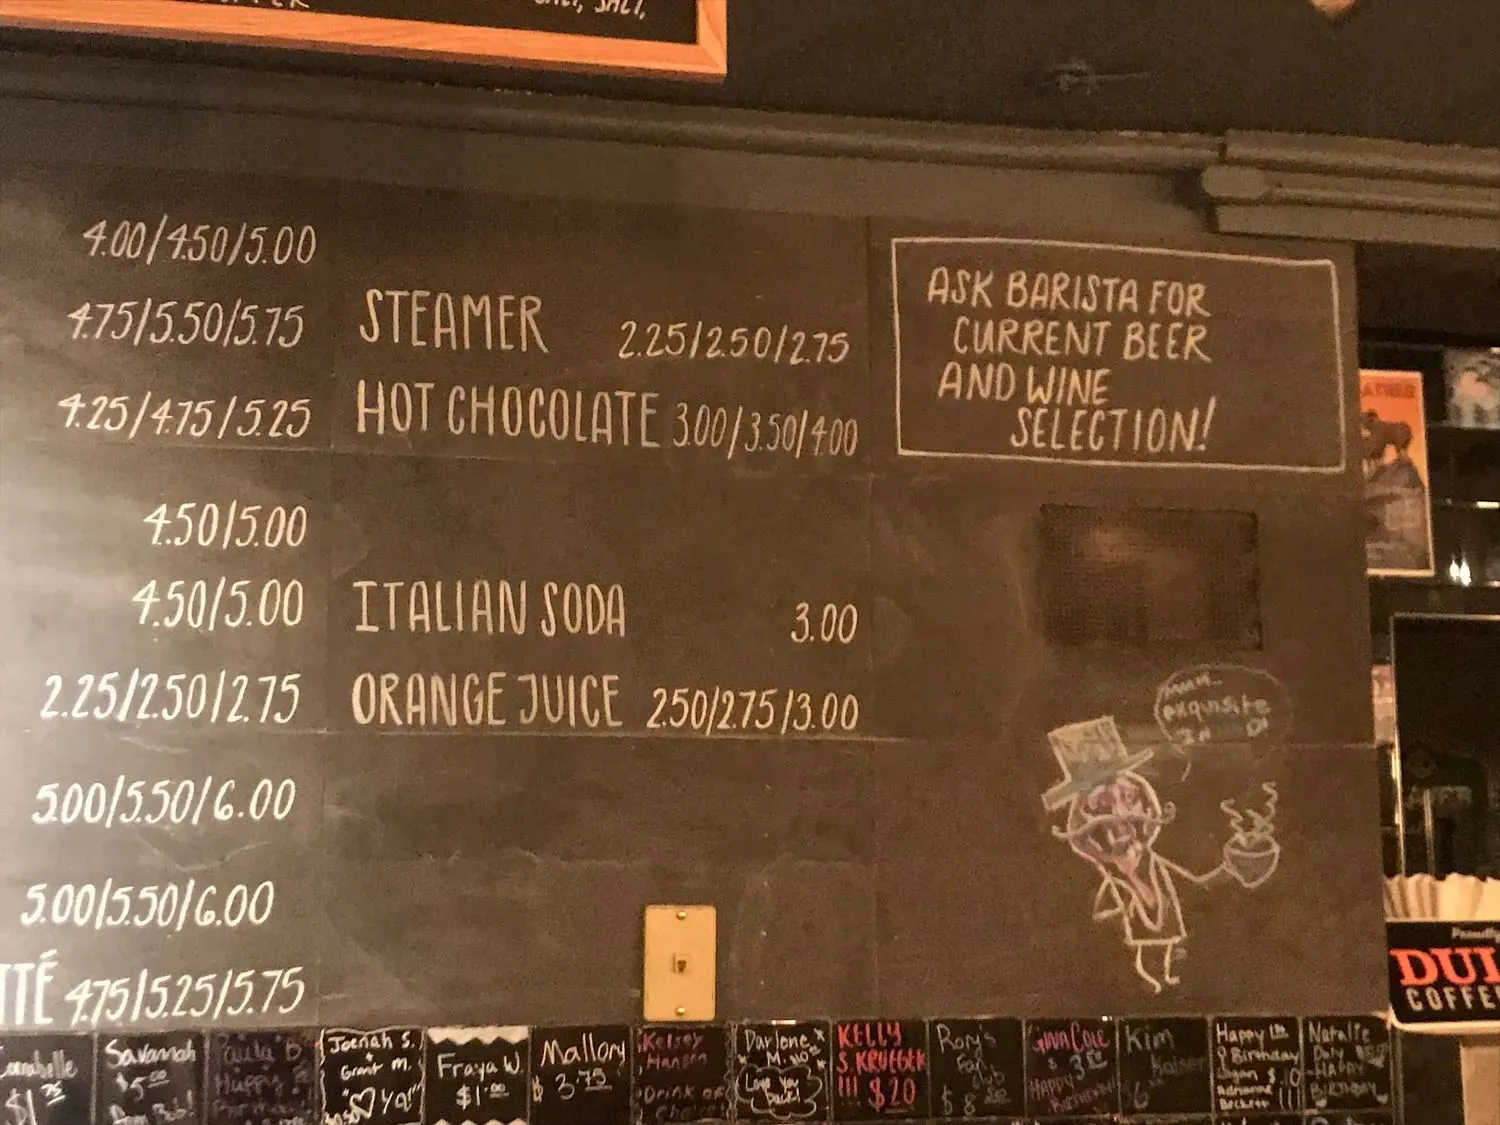 SALT,
4.00/4.50/5.00
4.75/5.50/5.75
4.25/4.75/5.25
4.50/5.00
4.50/5.00
2.25/2.50/2.75
5.00/5.50/6.00
5.00/5.50/6.00
TTÉ 4.75/5.25/5.75
STEAMER 2.25/2.50/2.75
HOT CHOCOLATE 3.00/3.50/4.00
ITALIAN SODA 3.00
ORANGE JUICE 2.50/2.75/3.00
ASK BARISTA FOR
CURRENT BEER
AND WINE
SELECTION!
exquisite
DUI
COFFEE
Savannah
$5.00
Paula B
Happy
Birthday
Grant M.
Fraya W.
$1.00
Mallory
$3.75
Kelsey
Hansen
DRINK OF
Choice!
Darlene
Love you
KELLY
S. KRUEGER
!!! $20
Rory's
Gina Cole
$ 3.50
HAPPY
Birthday!
Kim
Happy
Birthday
Natalie
HAPPY
BIRTHDAY